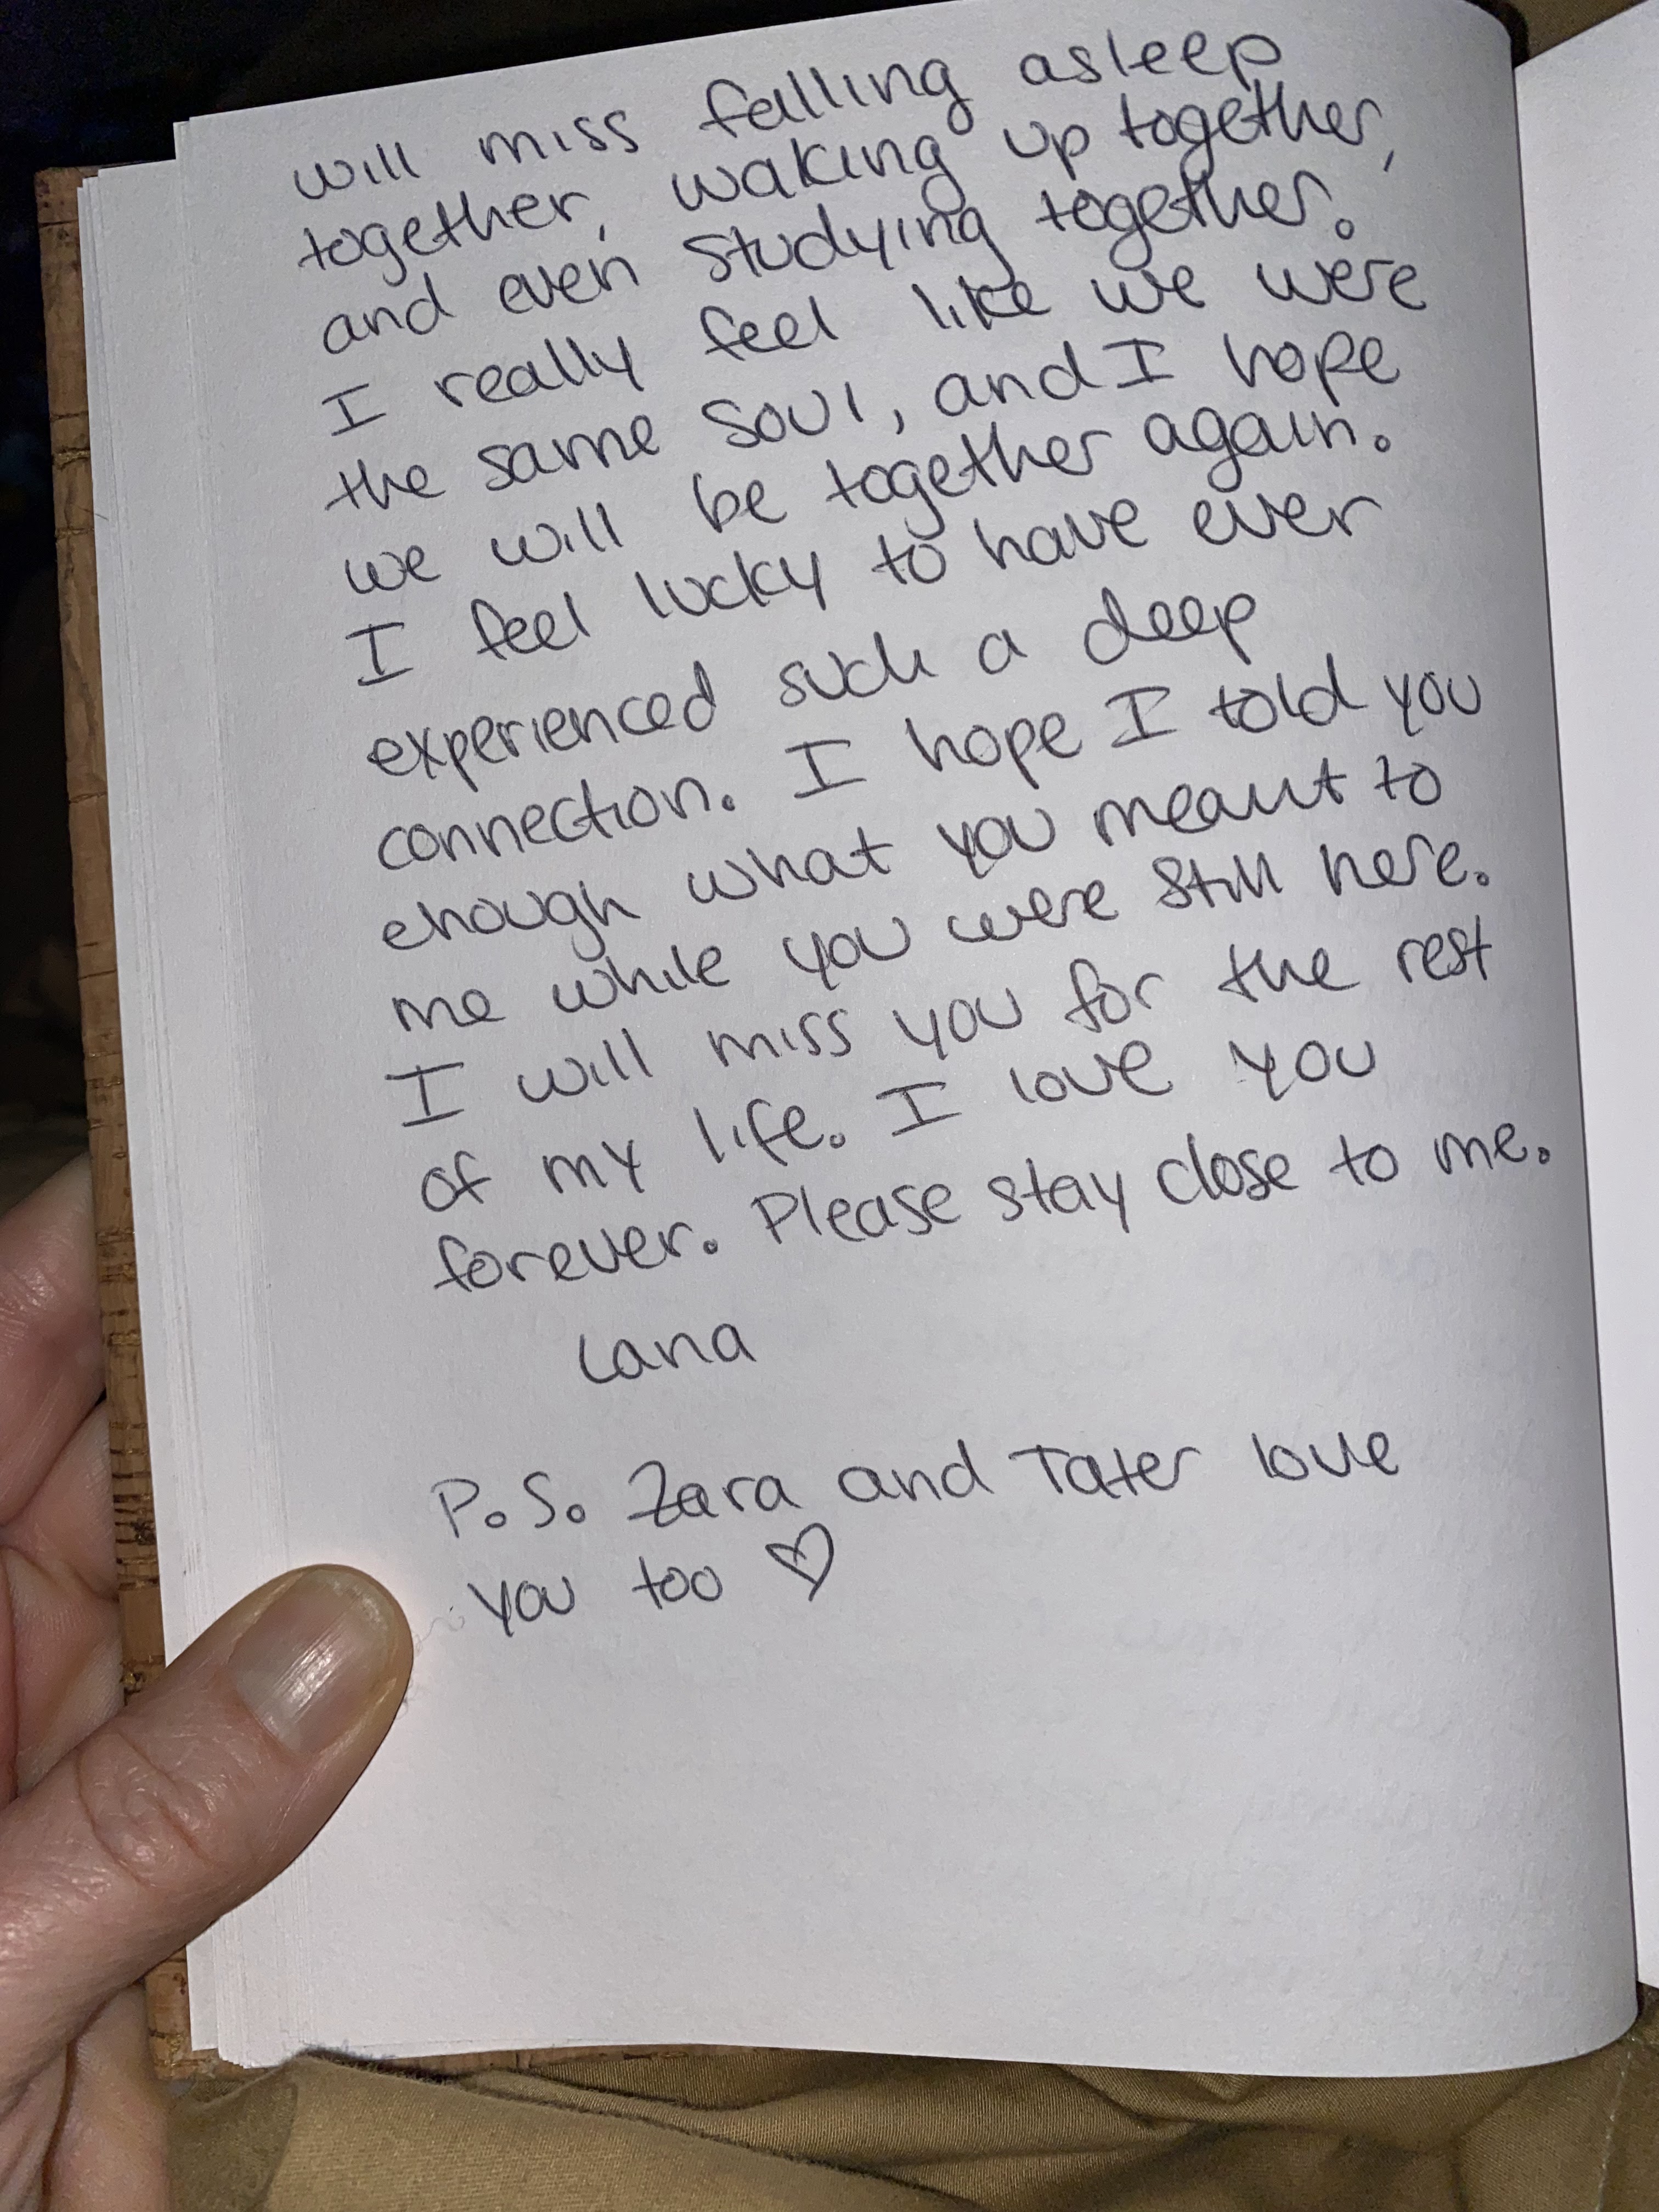 will miss falling asleep
together, waking up together,
and even studying together.
I really feel like we were
the same soul, and I hope
we will be together again.
I feel lucky to have ever
experienced such a deep
connection. I hope I told you
enough what you meant to
me while you were still here.
I will miss you for the rest
of my life. I love you
forever. Please stay close to me.
Lana
P.S. Zara and Tater love
you too ♡